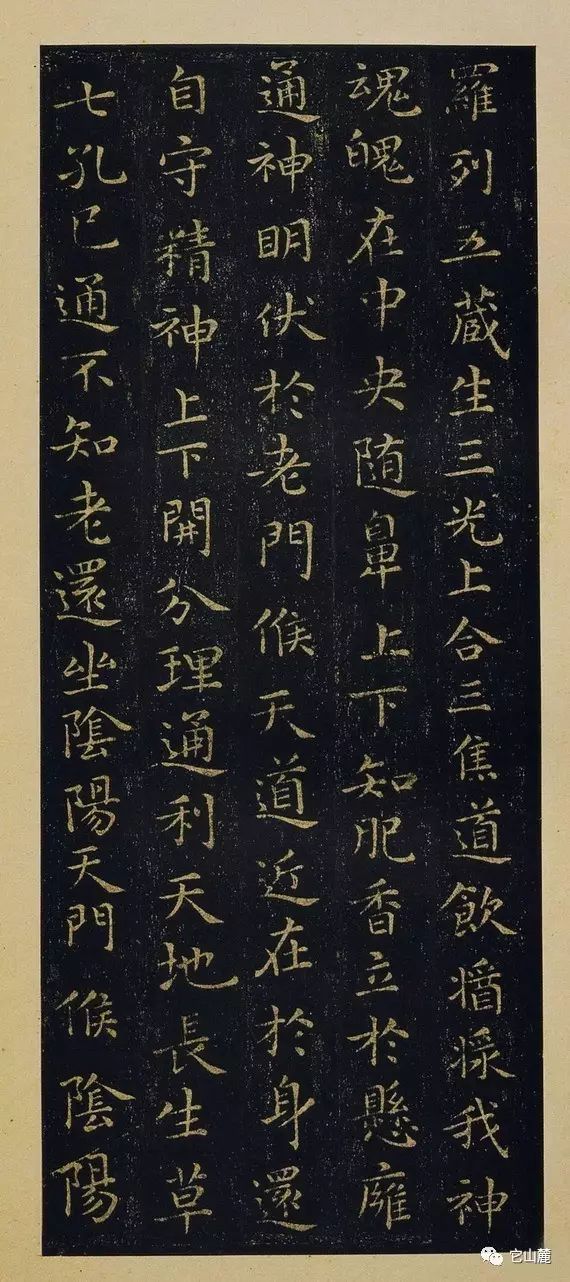 羅列五蔵生三光上合三焦道飲漿我神
魂魄在中央随鼻上下知肥香立於懸廱
通神明伏於老門候天道近在於身還
自守精神上下開分理通利天地長生草
七孔已通不知老還坐陰陽天門候陰陽
它山麓